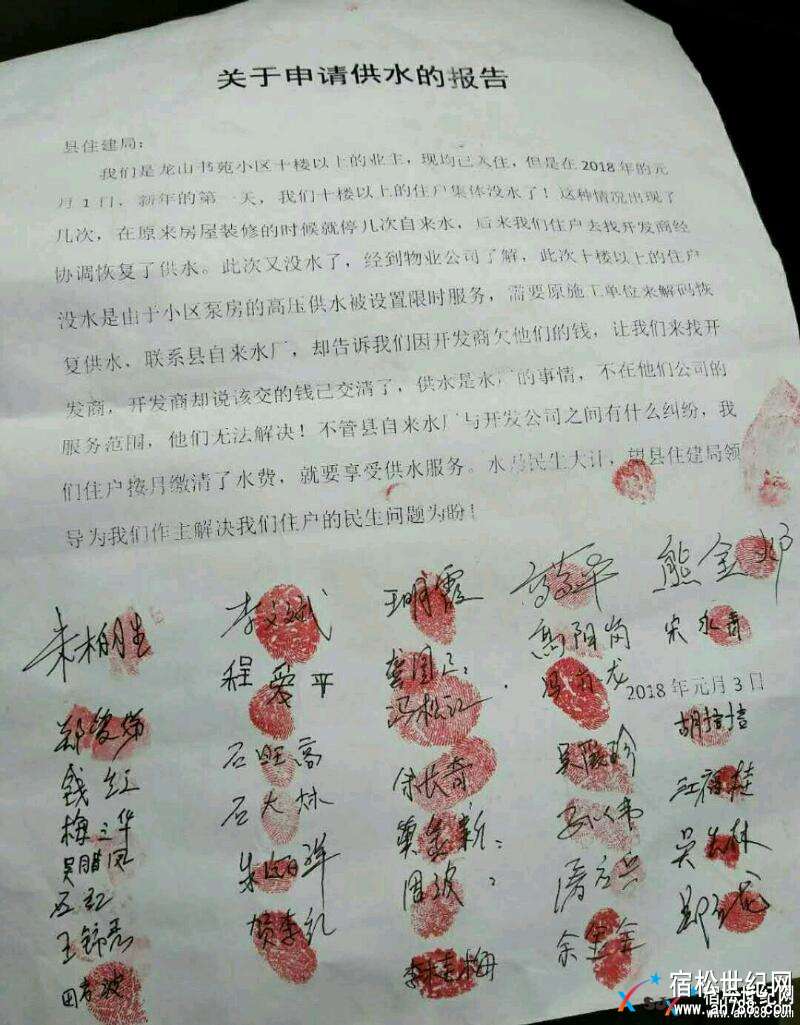 关于申请供水的报告
县住建局：
我们是龙山书苑小区十楼以上的业主，现均已入住，但是在2018年的元
月1日，新年的第一天，我们十楼以上的住户集体没水了！这种情况出现了
几次，在原来房屋装修的时候就停几次自来水，后来我们住户去找开发商经
协调恢复了供水。此次又没水了，经到物业公司了解，此次十楼以上的住户
没水是由于小区泵房的高压供水被设置限时服务，需要原施工单位来解码恢
复供水，联系县自来水厂，却告诉我们因开发商欠他们的钱，让我们来找开
发商，开发商却说该交的钱已交清了，供水是水厂的事情，不在他们公司的
服务范围，他们无法解决！不管县自来水厂与开发公司之间有什么纠纷，我
们住户按月缴清了水费，就要享受供水服务。水是民生大计，望县住建局领
导为我们作主解决我们住户的民生问题为盼！
朱柏生 李文斌 王明霞 熊金邓
程爱平 高阳岗 宋永春
冯松江
2018年元月3日
石旺高 余长奇 吴霞珍 胡培培
钱红 石大林 江福桂
梅立华 黄金新 吴火林
吴腊凤 周波
石红
王锦亮 余宝金
田孝波 李桂梅
宿松世纪网
www.ah788.com